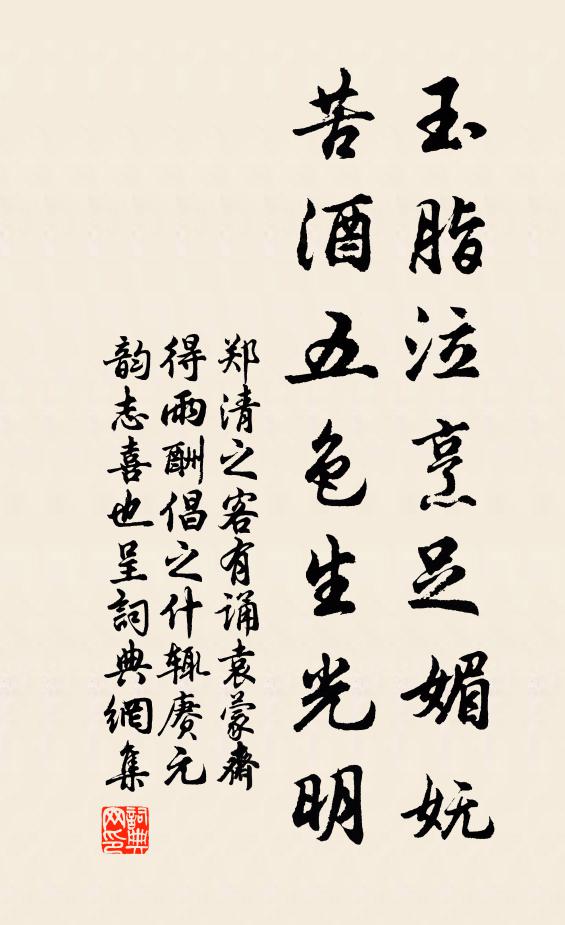 玉脂泣烹足媚妩
苦酒五色生光明
郑清之客有诵袁蒙齋
得雨酬倡之什辄赓元
韵志喜也呈詞典網集
詞典网印